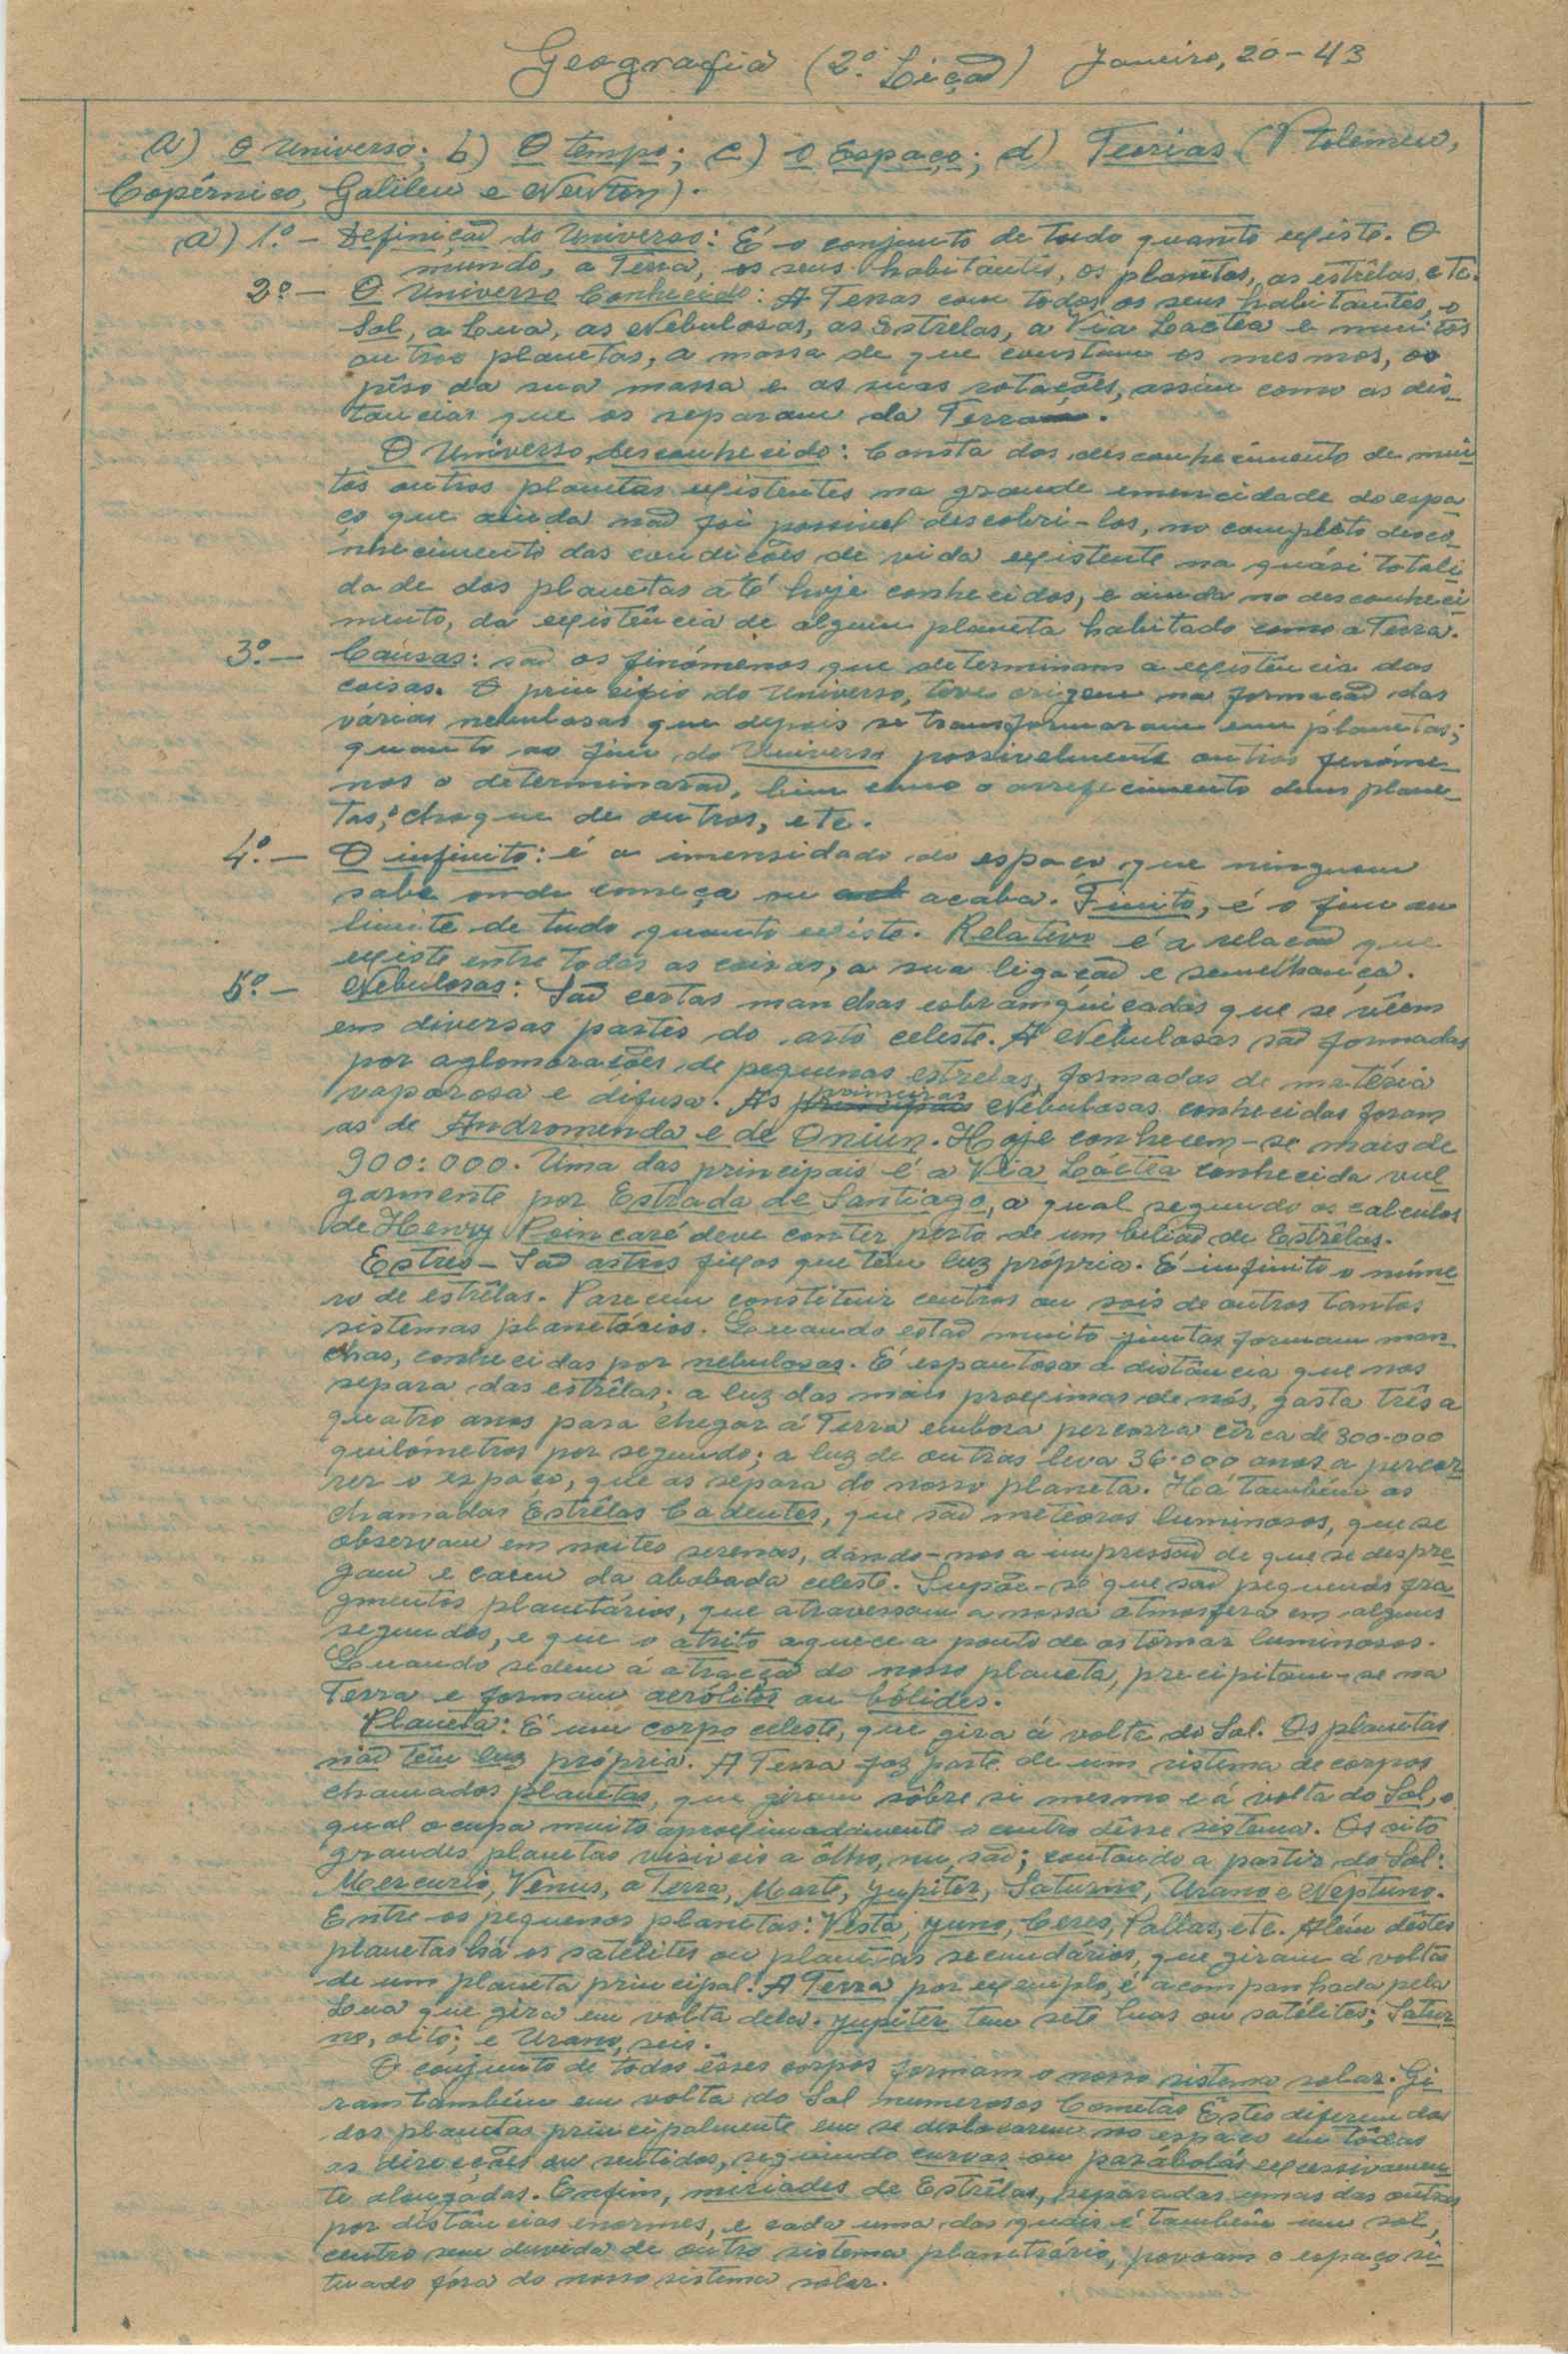 Geografia (2.ª Lição) Janeiro, 20-43
a) O Universo; b) O tempo; c) o Espaço; d) Teorias (Ptolemeu,
Copérnico, Galileu e Newton).
a) 1.º - Definição do Universo: É o conjunto de tudo quanto existe. O
mundo, a Terra, os seus habitantes, os planetas, as estrêlas, etc.
2.º - O Universo Conhecido: A Terras com todos os seus habitantes, o
Sol, a Lua, as Nebulosas, as Estrelas, a Via Lactea e muitos
outros planetas, a massa de que constam os mesmos, o
pêso da sua massa e as suas rotações, assim como as dis-
tancias que os separam da Terra.
O Universo desconhecido: Consta dos desconhecimento de mui
tos outros planetas existentes na grande emencidade do espa
ço que ainda não foi possivel descobri-los, no completo desco-
nhecimento das condições de vida existente na quási totali
dade dos planetas até hoje conhecidos, e ainda no desconheci
mento, da existência de algum planeta habitado como a Terra.
3.º - Caúsas: são os finómenos que determinam a existência das
coisas. O principio do Universo, teve origem na formação das
várias nebulosas que depois se transformaram em planetas;
quanto ao fim do Universo possivelmente outros fenóme-
nos o determinarão, bem como o arrefecimento duns plane-
tas, choque de outros, etc.
4.º - O infinito: é a imensidade do espaço que ninguem
sabe onde começa ou acaba. Finito, é o fim ou
limite de tudo quanto existe. Relativo é a relação que
existe entre todas as coisas, a sua ligação e semelhança.
5.º - Nebulosas: São certas manchas esbranquicadas que se vêem
em diversas partes do arto celeste. A Nebulosas são formadas
por aglomorações de pequenas estrelas, formadas de matéria
vaporosa e difusa. As primeiras Nebulosas conhecidas foram
as de Andromenda e de Oniun. Hoje conhecem-se mais de
900:000. Uma das principais é a Via Láctea conhecida vul
garmente por Estrada de Santiago, a qual segundo os calculos
de Henry Poincaré deve conter perto de um bilião de Estrêlas.
Estres - São astros fixos que têm luz própria. É infinito o núme
ro de estrêlas. Parecem constituir centros ou sois de outros tantos
sistemas planetários. Quando estão muito juntas formam man-
chas, conhecidas por nebulosas. É espantosa a distância que nos
separa das estrêlas; a luz das mais proximas de nós, gasta três a
quatro anos para chegar á Terra embora percorra cêrca de 300.000
quilómetros por segundo; a luz de outras leva 36.000 anos a percor
rer o espaço, que as separa do nosso planeta. Há também as
chamadas Estrêlas Cadentes, que são meteoros luminosos, que se
observam em noites serenas, dando-nos a impressão de que se despre
gam e caem da abobada celeste. Supõe-se que são pequenos fra
gmentos planetários, que atravessam a nossa atmosfera em alguns
segundos, e que o atrito aquece a ponto de os tornar luminosos.
Quando sedem á atracção do nosso planeta, precipitam-se na
Terra e formam aerólitos ou bólides.
Planeta: É um corpo celeste, que gira á volta do Sol. Os planetas
não têm luz própria. A Terra faz parte de um sistema de corpos
chamados planetas, que giram sôbre si mesmo e á volta do Sol, o
qual ocupa muito aproximadamente o centro dêsse sistema. Os oito
grandes planetas visiveis a ôlho, nu, são; contando a partir do Sol:
Mercurio, Vénus, a Terra, Marte, Jupiter, Saturno, Urano e Neptuno.
Entre os pequenos planetas: Vesta, Juno, Ceres, Pallas, etc. Além dêstes
planetas há os satélites ou planetas secundários, que giram á volta
de um planeta principal. A Terra por exemplo, é acompanhada pela
Lua que gira em volta dela. Jupiter tem sete luas ou satélites; Satur
no, oito; e Urano, seis.
O conjunto de todos êsses corpos formam o nosso sistema solar. Gi
ram também em volta do Sol numerosos Cometas Êstes diferem dos
dos planetas principalmente em se deslocarem no espaço em tôdas
as direcções ou sentidos, seguindo curvas ou parábolas excessivamen
te alongadas. Enfim, miriades de Estrêlas, separadas umas das outras
por distâncias enormes, e cada uma das quais é também um sol,
centro sem duvida de outro sistema planetário, povoam o espaço si
tuado fóra do nosso sistema solar.